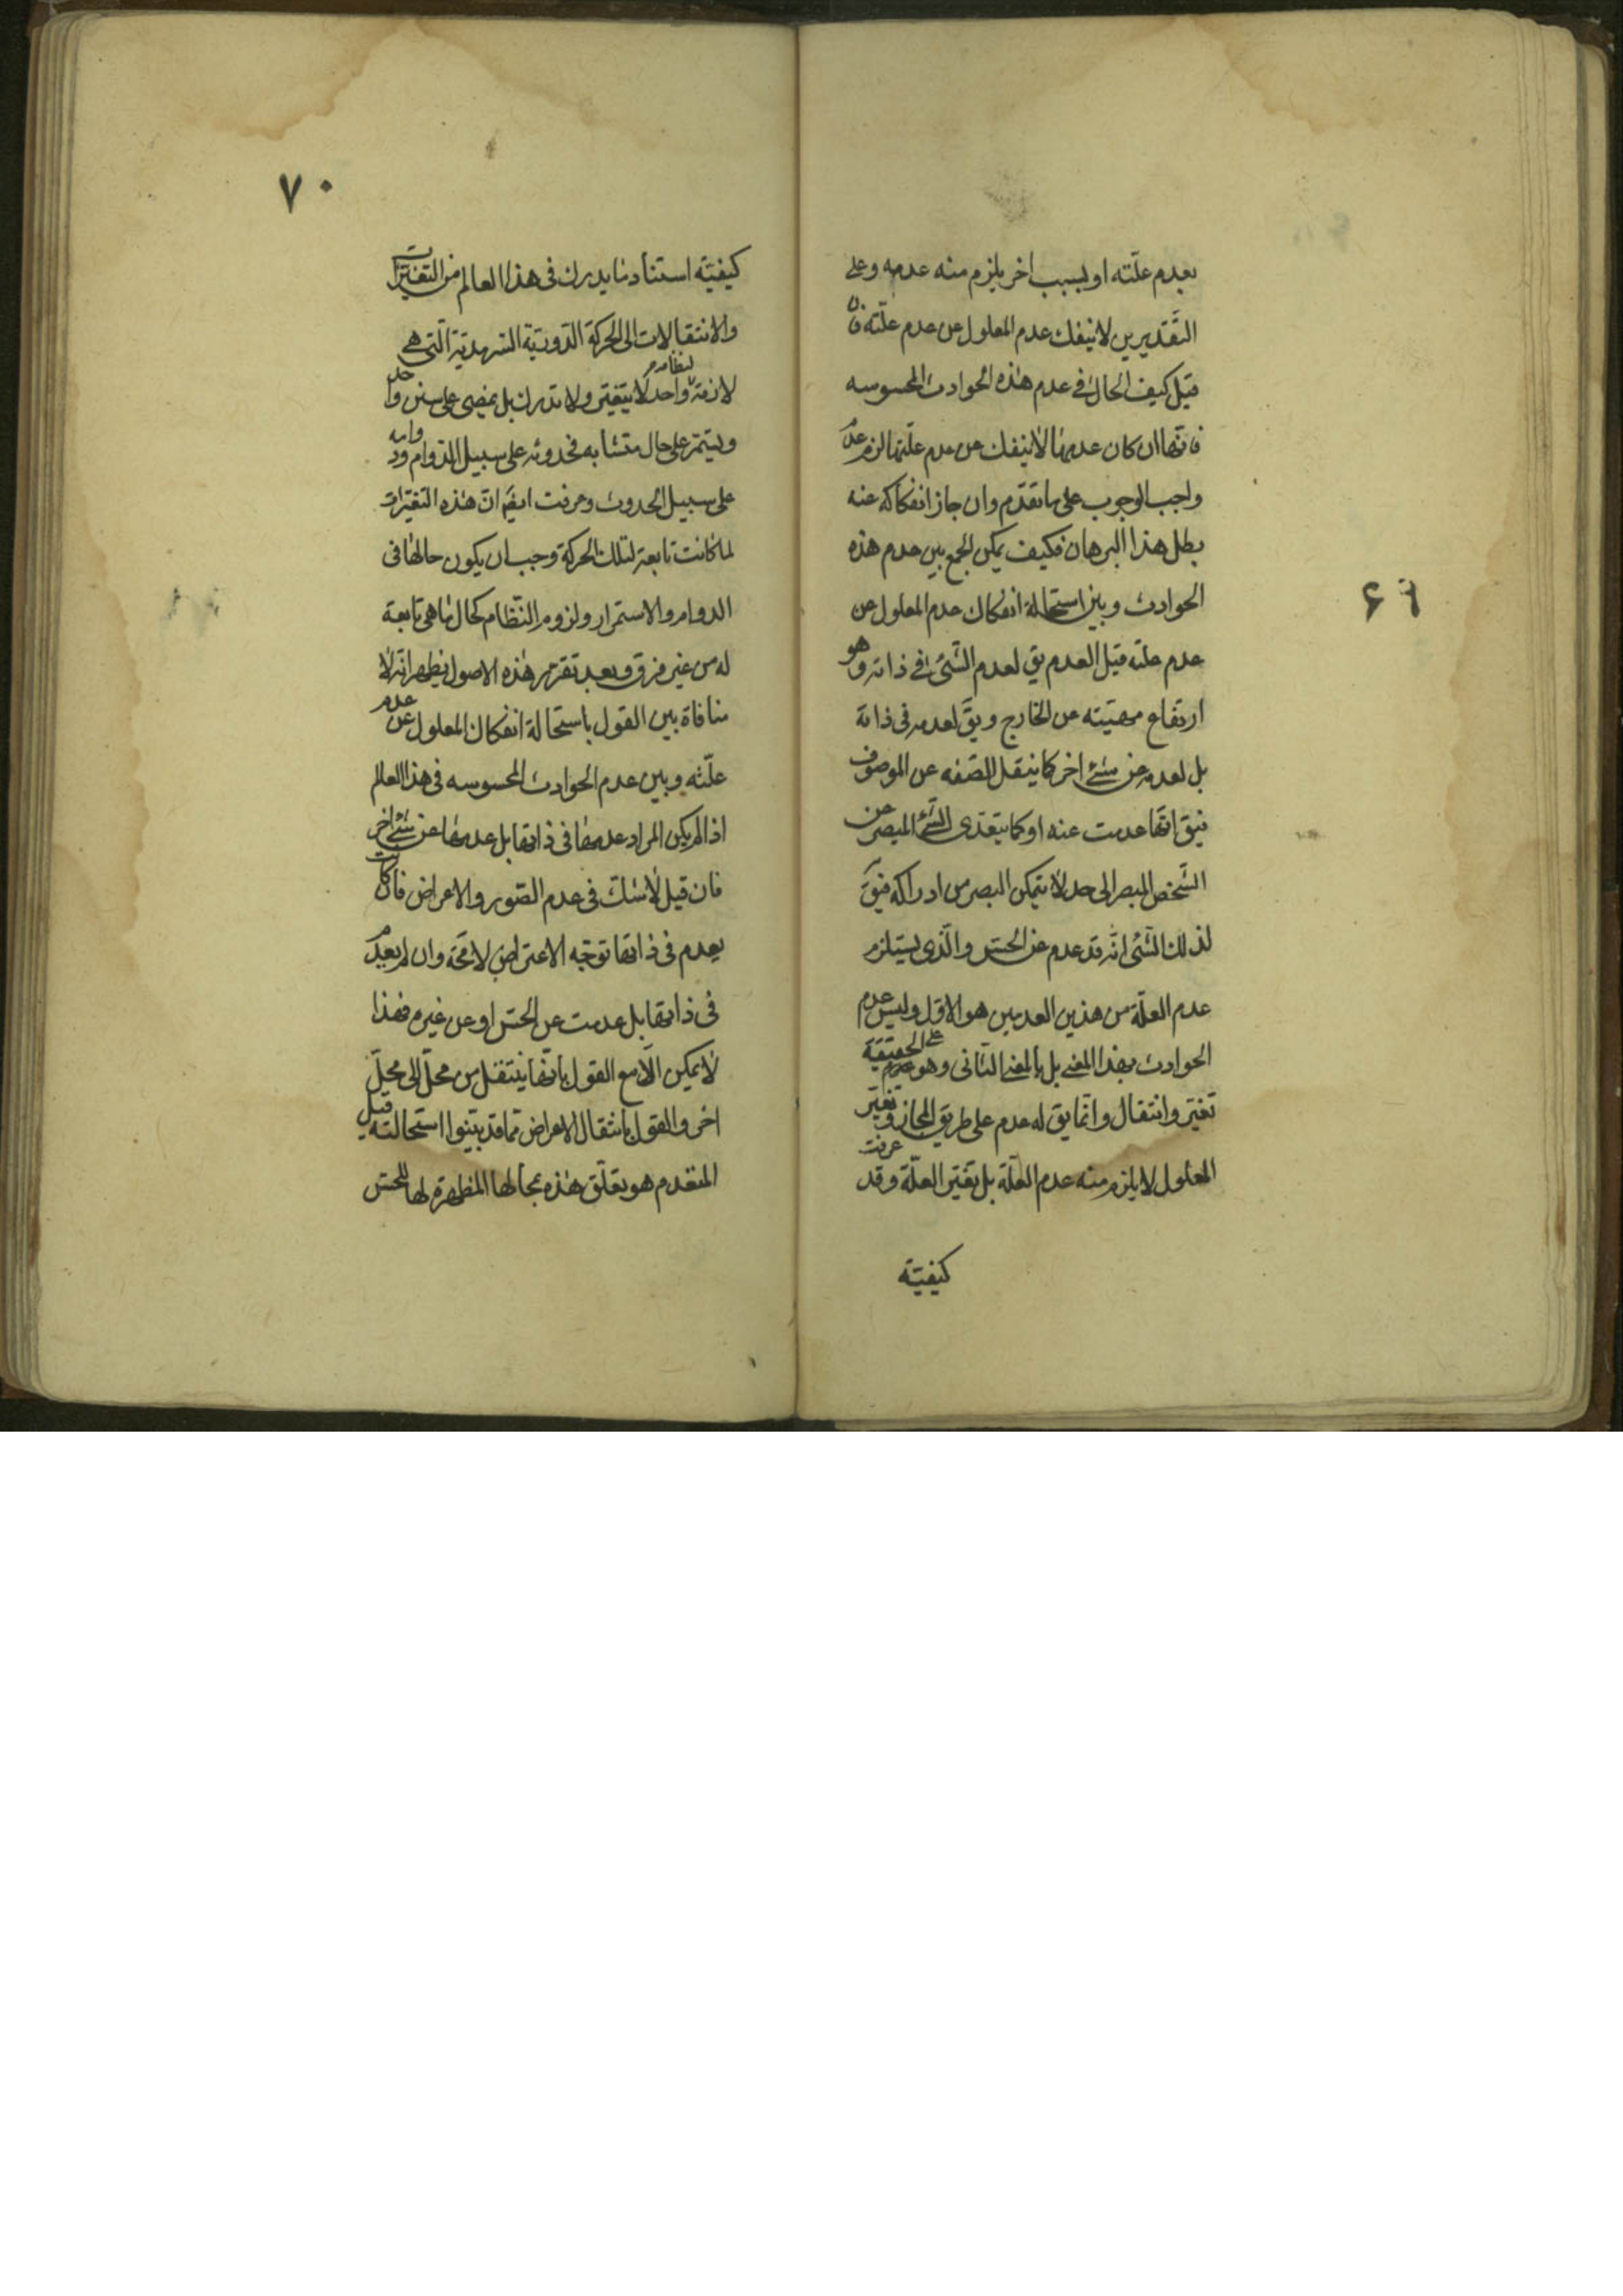 ٦٩
بعدم علّته او لسبب اخر يلزم منه عدمه وعلى
التّقديرين لا ينفك عدم المعلول عن عدم علّته فان
قيل كيف الحال فى عدم هذه الحوادث المحسوسه
فانّها ان كان عدمها لا ينفك عن عدم علّتها لزم عدم
واجب الوجوب على ما تقدّم وان جاز انفكاكه عنه
بطل هذا البرهان فكيف يمكن الجمع بين عدم هذه
الحوادث وبين استحالة انفكاك عدم المعلول عن
عدم علته قيل العدم يق لعدم الشّئ فى ذاته وهو
ارتفاع مهيّته عن الخارج ويق لعدمه لا فى ذاته
بل لعدمه عن شئ اخر كما ينتقل الصّفه عن الموصوف
فيق انّها عدمت عنه او كما يتعدّى الشّئ المبصر عن
الشّخص المبصر الى حد لا يتمكن البصر من ادراكه فيق
لذلك الشّئ انّه قد عدم عن الحسّ والّذى يستلزم
عدم العلّة من هذين العدمين هو الاوّل وليس عدم
الحوادث بهذا المعنى بل بالمعنى الثّانى وهو على الحقيقة
تغيّر وانتقال وانّما يق له عدم على طريق المجاز وتغيّر
المعلول لا يلزم منه عدم العلّة بل تغيّر العلّة وقد عرفت
كيفيّة
٧٠
كيفيّة استناد ما يدرك فى هذا العالم من التغيّرات
والانتقالات الى الحركة الدّوريّة السّرمديّة الّتى هى
لازمة لنظام واحد لا يتغيّر ولا تدرك بل يمضى على سنن واحد
ويستمرّ على حال متشابه فحدوثه على سبيل الدّوام ودوامه
على سبيل الحدوث وعرفت ايضا انّ هذه التّغيّرات
لما كانت تابعة لتلك الحركة وجب ان يكون حالها فى
الدوام والاستمرار ولزوم النّظام كحال ما هى تابعة
له من غير فرق وبعد تقرّر هذه الاصول يظهر انّه لا
منافاة بين القول باستحالة انفكاك المعلول عن عدم
علّته وبين عدم الحوادث المحسوسه فى هذا العالم
اذا لم يكن المراد عدمها فى ذاتها بل عدمها عن شئ اخر
فان قيل لا شك فى عدم الصّور والاعراض فان كانت
يعدم فى ذاتها توجّه الاعتراض لا محة وان لم يعدم
فى ذاتها بل عدمت عن الحسّ او عن غيره فهذا
لا يمكن الّا مع القول بانّها ينتقل من محلّ الى محلّ
اخر والقول بانتقال الاعراض ممّا قد بيّنوا استحالته قيل
المتقدم هو تعلّق هذه بمحالها المظهرة لها للحسّ